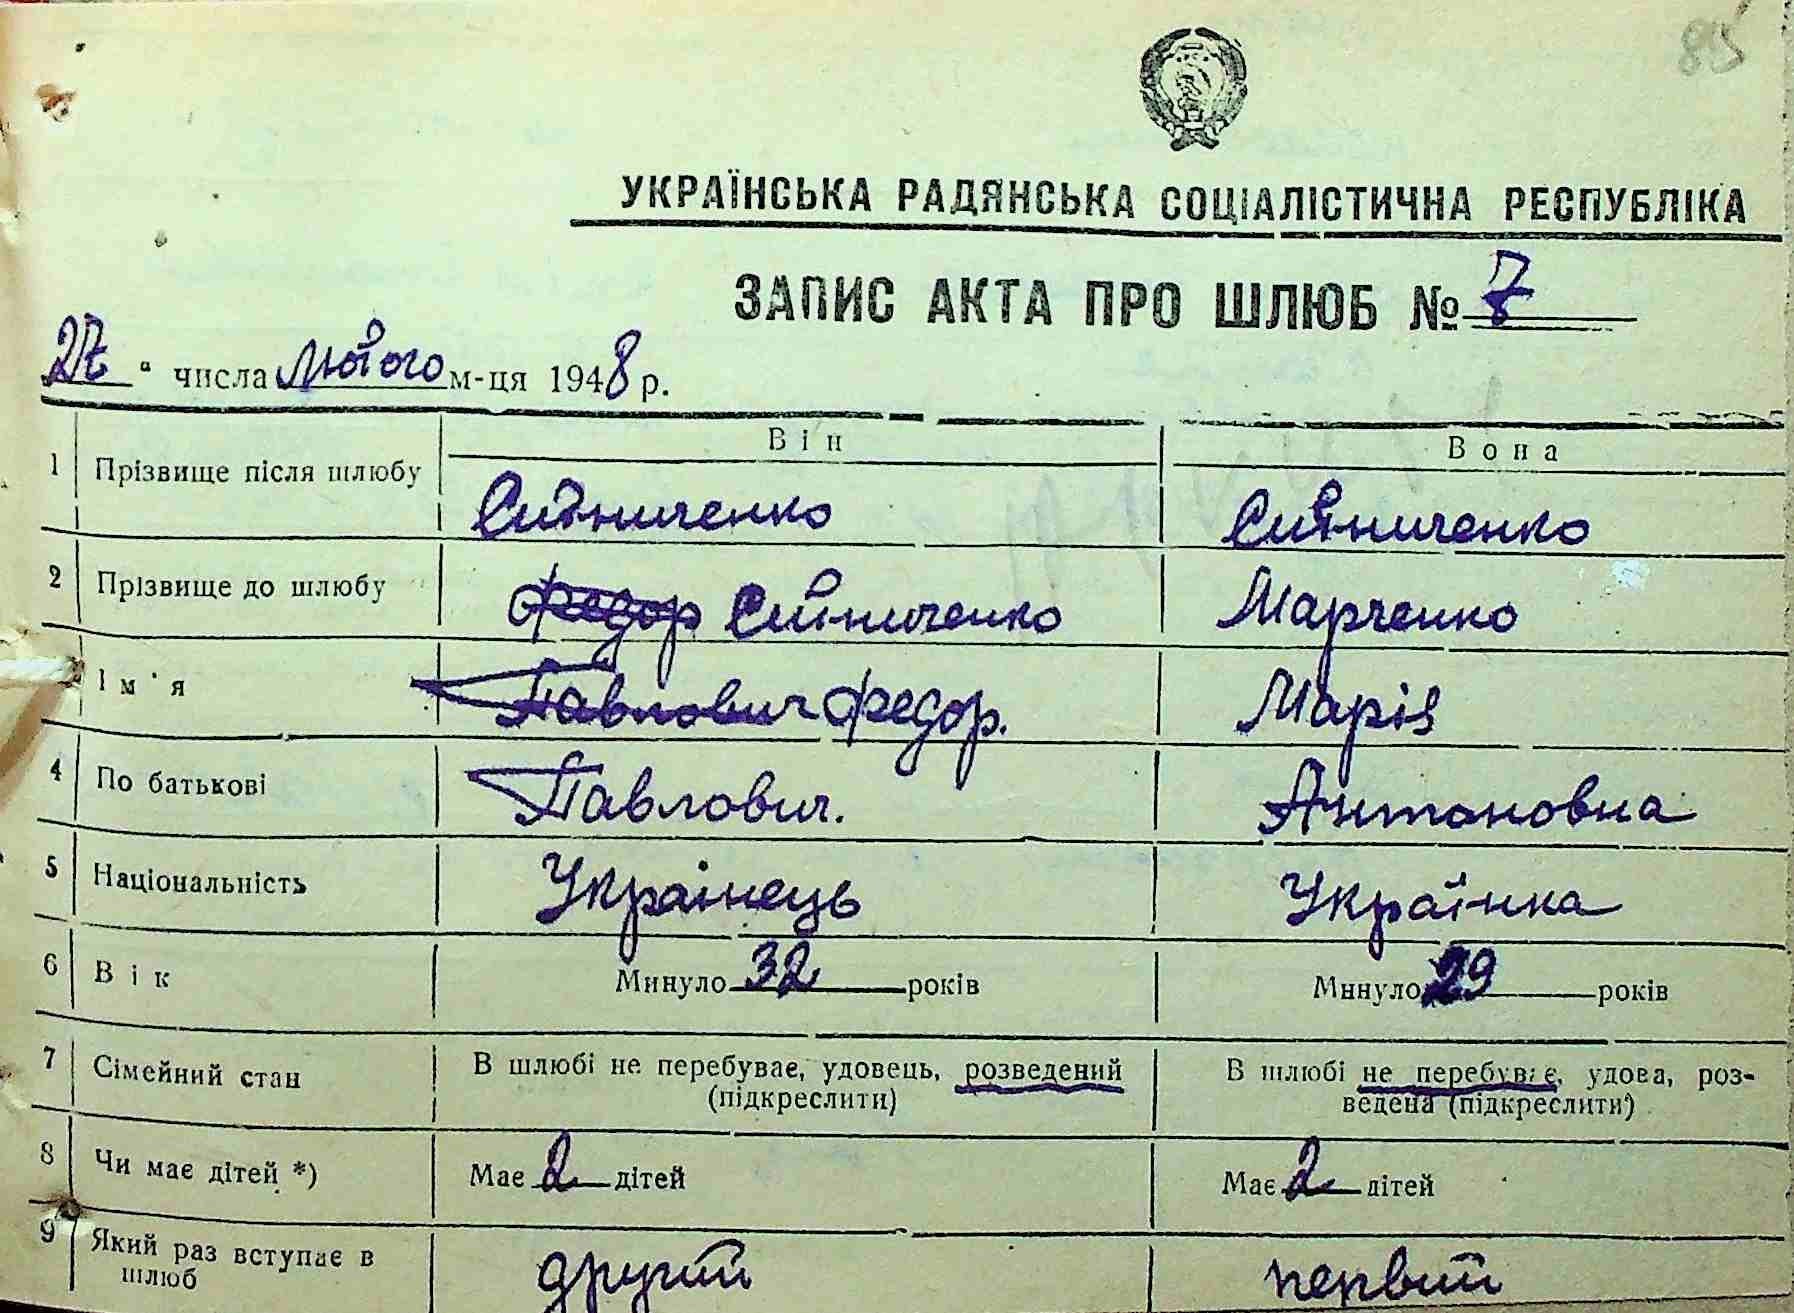 85
УКРАЇНСЬКА РАДЯНСЬКА СОЦІАЛІСТИЧНА РЕСПУБЛІКА
ЗАПИС АКТА ПРО ШЛЮБ № 7
27 " числа Лютого м-ця 1948 р.
Він Вона
1 Прізвище після шлюбу Ситниченко Ситниченко
2 Прізвище до шлюбу Федор Ситниченко Марченко
Ім'я Павлович Федор. Марія
4 По батькові Павлович. Антоновна
5 Національність Українець Українка
6 Вік Минуло 32 років Минуло 29 років
7 Сімейний стан В шлюбі не перебуває, удовець, розведений В шлюбі не перебуває, удова, роз-
(підкреслити) ведена (підкреслити)
8 Чи має дітей *) Має 2 дітей Має 2 дітей
9 Який раз вступає в шлюб другий первий